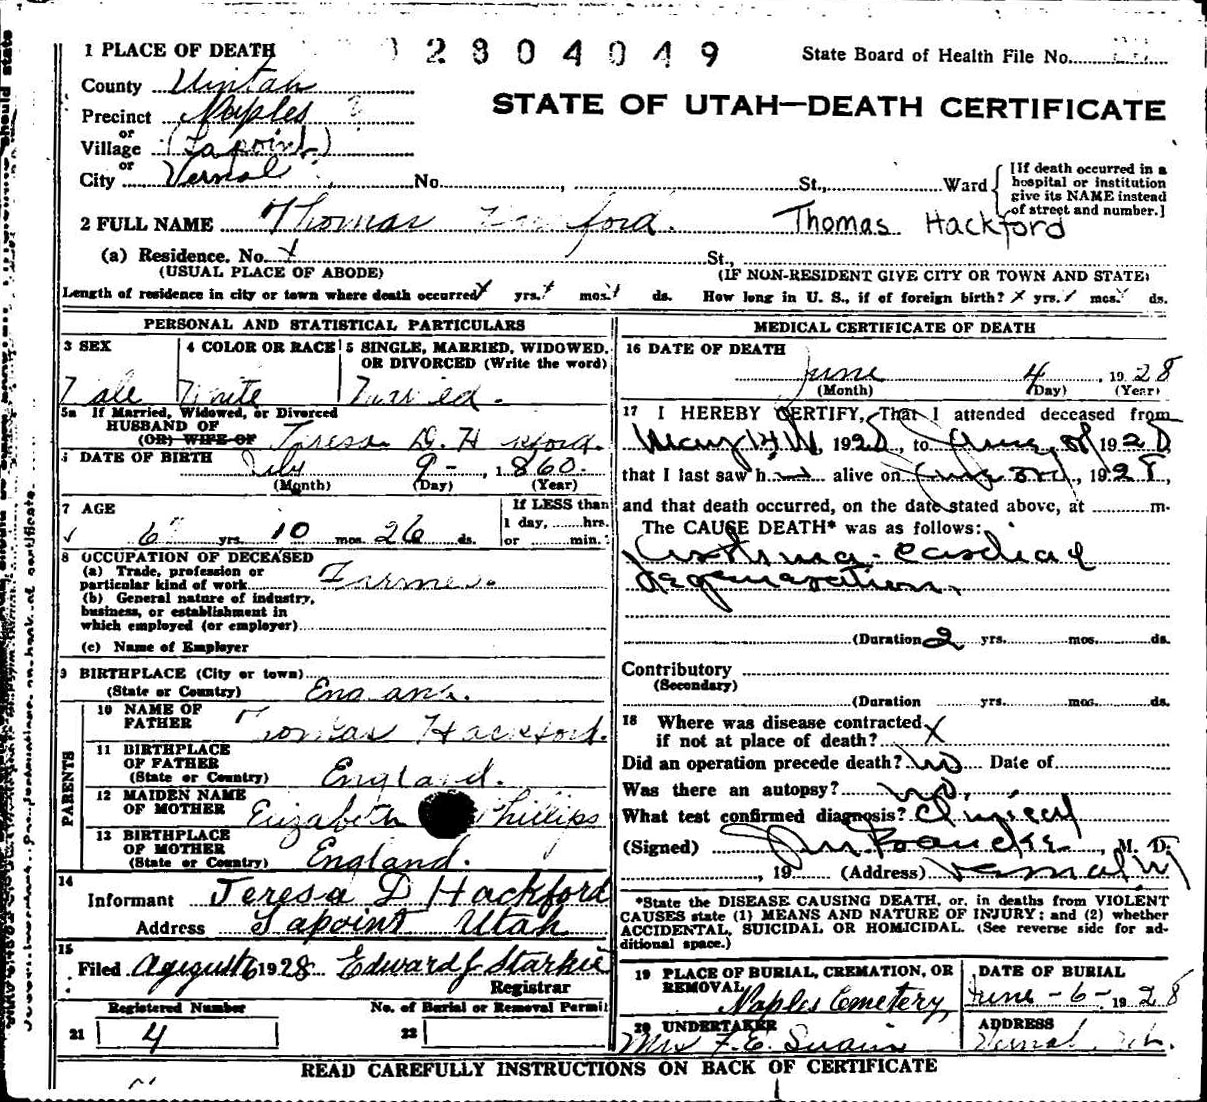 1 PLACE OF DEATH
2804049
State Board of Health File No.
County Uintah
STATE OF UTAH—DEATH CERTIFICATE
Precinct Naples
or
Village (Lapoint)
or
City Vernal No. , St., Ward
[If death occurred in a
hospital or institution
give its NAME instead
of street and number.]
2 FULL NAME Thomas ford. Thomas Hackford
(a) Residence. No. St.,
(USUAL PLACE OF ABODE) (IF NON-RESIDENT GIVE CITY OR TOWN AND STATE)
Length of residence in city or town where death occurred yrs. mos. ds. How long in U. S., if of foreign birth? yrs. mos. ds.
PERSONAL AND STATISTICAL PARTICULARS
3 SEX
4 COLOR OR RACE
5 SINGLE, MARRIED, WIDOWED,
OR DIVORCED (Write the word)
5a If Married, Widowed, or Divorced
HUSBAND OF
(OR) WIFE OF
Teresa D. H kford.
DATE OF BIRTH July 9-, 1860.
(Month) (Day) (Year)
7 AGE
yrs. 10 mos. 26 ds.
If LESS than
1 day, hrs.
or min.
8 OCCUPATION OF DECEASED
(a) Trade, profession or
particular kind of work
(b) General nature of industry,
business, or establishment in
which employed (or employer)
(c) Name of Employer
9 BIRTHPLACE (City or town)
(State or Country)
PARENTS
10 NAME OF
FATHER
Hackford.
11 BIRTHPLACE
OF FATHER
(State or Country) England.
12 MAIDEN NAME
OF MOTHER Elizabeth Phillips
13 BIRTHPLACE
OF MOTHER
(State or Country) England.
14
Informant Teresa D Hackford
Address Lapoint Utah
15
Filed August 6 1928 Edward J Starkie
Registrar
Registered Number No. of Burial or Removal Permit
21 4 22
MEDICAL CERTIFICATE OF DEATH
16 DATE OF DEATH
June 4, 1928
(Month) (Day) (Year)
17 I HEREBY CERTIFY, That I attended deceased from
May 1928, to 1928
that I last saw h alive on 3rd, 1928,
and that death occurred, on the date stated above, at m.
The CAUSE DEATH* was as follows:
Asthma - cardiac
degeneration.
(Duration 2 yrs. mos. ds.
Contributory
(Secondary)
(Duration yrs. mos. ds.
18 Where was disease contracted
if not at place of death? X
Did an operation precede death? no Date of
Was there an autopsy? no.
What test confirmed diagnosis? Clinical
(Signed) , M. D.
, 19 (Address) Vernal, Ut
*State the DISEASE CAUSING DEATH, or, in deaths from VIOLENT
CAUSES state (1) MEANS AND NATURE OF INJURY; and (2) whether
ACCIDENTAL, SUICIDAL OR HOMICIDAL. (See reverse side for ad-
ditional space.)
19 PLACE OF BURIAL, CREMATION, OR
REMOVAL
Naples Cemetery,
DATE OF BURIAL
June -6- 1928
20 UNDERTAKER
Mrs F. E. Swain
ADDRESS
Vernal, Ut.
READ CAREFULLY INSTRUCTIONS ON BACK OF CERTIFICATE